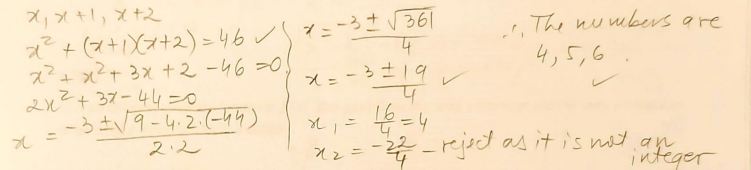 x, x+1, x+2
x² + (x+1)(x+2) = 46 ✓
x² + x² + 3x + 2 - 46 = 0
2x² + 3x - 44 = 0
x = (-3 ± √(9 - 4·2·(-44))) / (2·2)
x = (-3 ± √361) / 4
x = (-3 ± 19) / 4 ✓
x₁ = 16/4 = 4
x₂ = -22/4 - reject as it is not an integer
∴ The numbers are
4, 5, 6.
✓